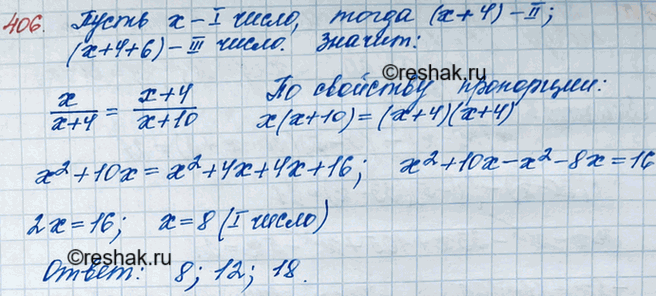 406. Пусть x – I число, тогда (x+4) – II;
(x+4+6) – III число. Значит:
©reshak.ru
x/(x+4) = (x+4)/(x+10) По свойству пропорции:
x(x+10)=(x+4)(x+4)
x²+10x=x²+4x+4x+16; x²+10x-x²-8x=16
2x=16; x=8 (I число)
©reshak.ru
Ответ: 8; 12; 18.